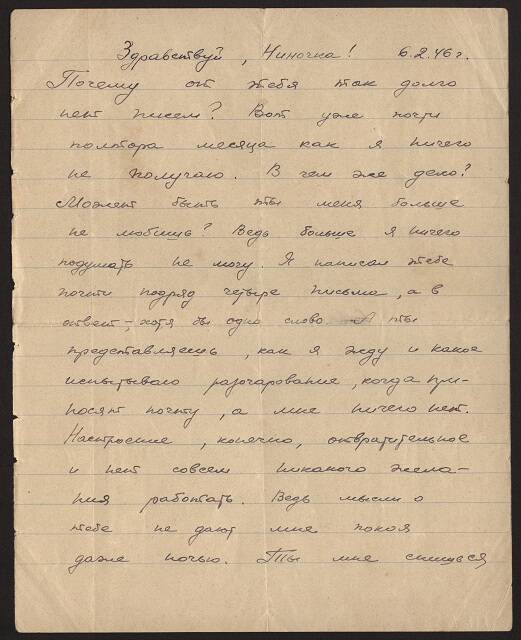 Здравствуй, Ниночка! 6.2.46 г.
Почему от тебя так долго
нет писем? Вот уже почти
полтора месяца как я ничего
не получаю. В чем же дело?
Может быть ты меня больше
не любишь? Ведь больше я ничего
подумать не могу. Я написал тебе
почти подряд четыре письма, а в
ответ – хотя бы одно слово. А ты
представляешь, как я жду и какое
испытываю разочарование, когда при-
носят почту, а мне ничего нет.
Настроение, конечно, отвратительное
и нет совсем никакого жела-
ния работать. Ведь мысли о
тебе не дают мне покоя
даже ночью. Ты мне снишься